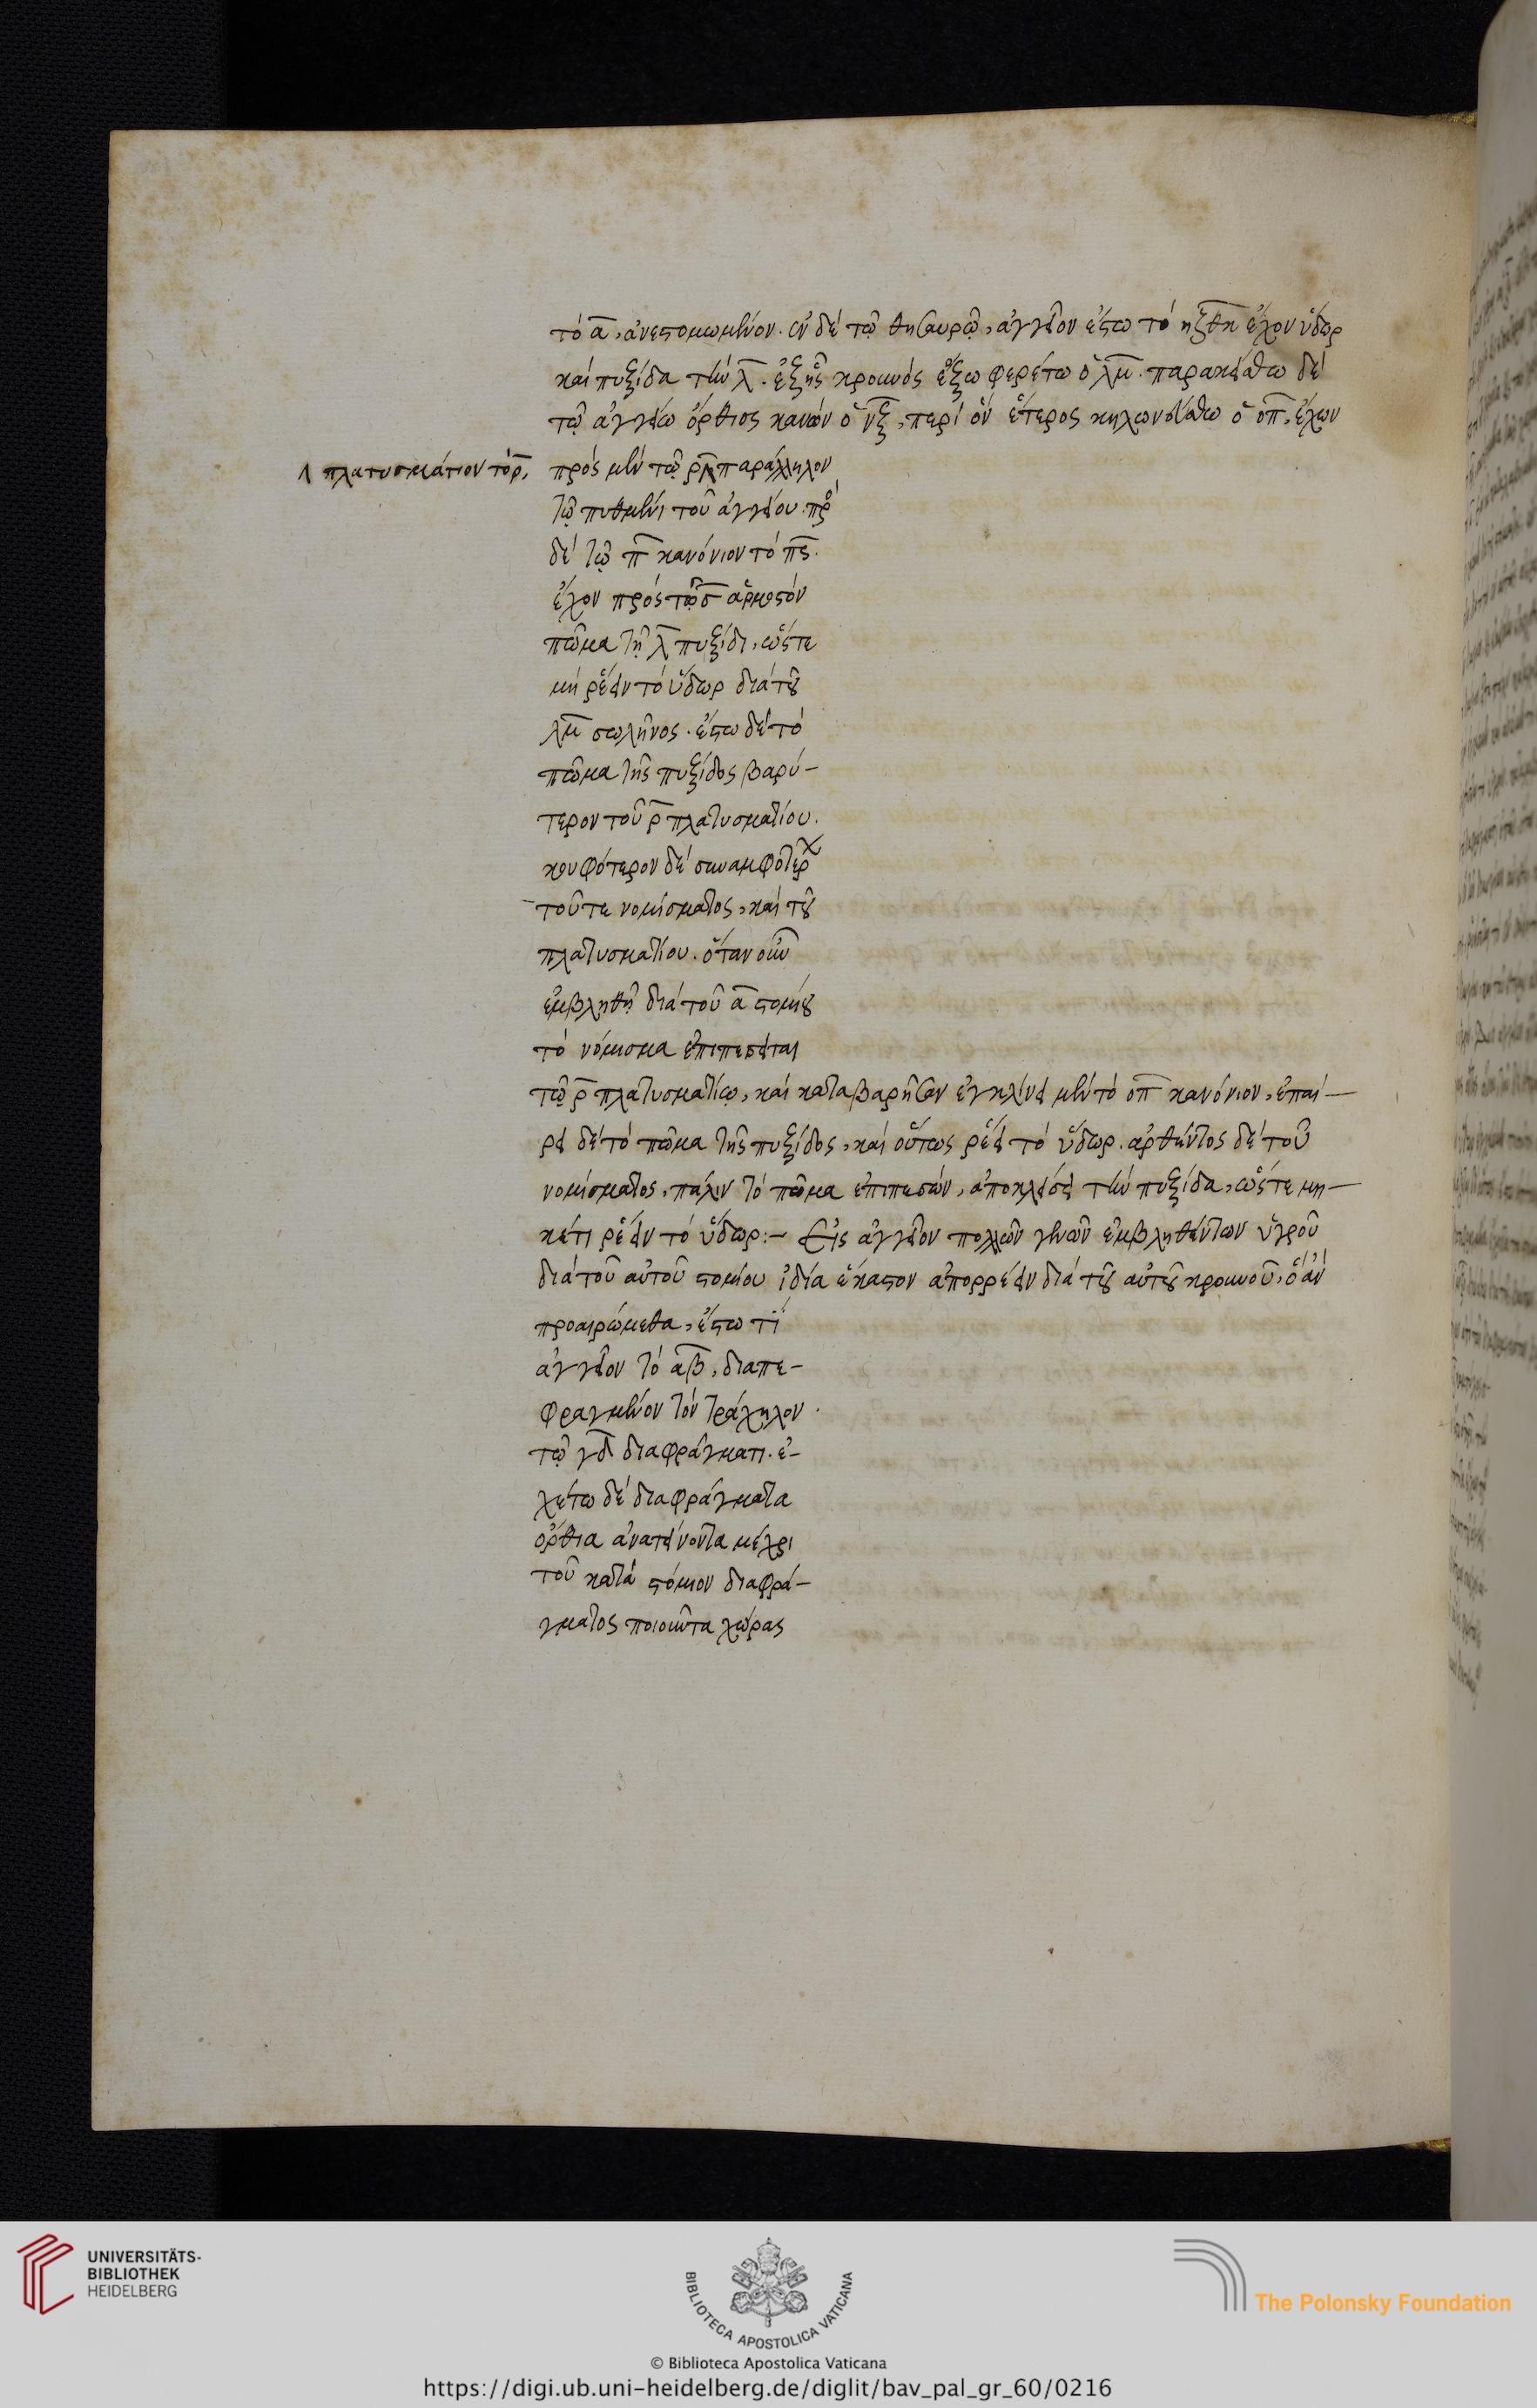 τὸ α, ἀνεστομωμένον. ἐν δὲ τῷ θησαυρῷ, ἀγγεῖον ἔστω τὸ ηζθκ ἔχον ὕδωρ
καὶ πυξίδα τὴν λ. ἐξ ἧς κρουνὸς ἔξω φερέτω ὁ λμ. παρακείσθω δὲ
τῷ ἀγγείῳ ὄρθιος κανὼν ὁ νξ, περὶ ὃν ἕτερος κηλωνείσθω ὁ οπ, ἔχων
πλατυσμάτιον τὸ ρ,
πρὸς μὲν τῷ παράλληλον
τῷ πυθμένι τοῦ ἀγγείου. πρὸς
δὲ τῷ π κανόνιον τὸ πς.
ἔχον πρὸς τῷ σ ἁρμοστὸν
πῶμα τῇ λ πυξίδι, ὥστε
μὴ ῥέειν τὸ ὕδωρ διὰ τοῦ
λμ σωλῆνος. ἔστω δὲ τὸ
πῶμα τῆς πυξίδος βαρύ-
τερον τοῦ ρ πλατυσματίου.
κουφότερον δὲ συναμφοτέρου
τοῦ τε νομίσματος, καὶ τοῦ
πλατυσματίου. ὅταν οὖν
ἐμβληθῇ διὰ τοῦ α στομίου
τὸ νόμισμα ἐπιπεσεῖται
τῷ ρ πλατυσματίῳ, καὶ καταβαρῆσαν ἐγκλίνει μὲν τὸ οπ κανόνιον, ἐπαί-
ρει δὲ τὸ πῶμα τῆς πυξίδος, καὶ οὕτως ῥέει τὸ ὕδωρ. ἀρθέντος δὲ τοῦ
νομίσματος, πάλιν τὸ πῶμα ἐπιπεσὼν, ἀποκλείσει τὴν πυξίδα, ὥστε μη-
κέτι ῥέειν τὸ ὕδωρ:- Εἰς ἀγγεῖον πολλῶν γενῶν ἐμβληθέντων ὑγροῦ
διὰ τοῦ αὐτοῦ στομίου ἰδία ἕκαστον ἀπορρέειν διὰ τοῦ αὐτοῦ κρουνοῦ, ὃ ἂν
προαιρώμεθα, ἔστω τι
ἀγγεῖον τὸ αβ, διαπε-
φραγμένον τὸν τράχηλον
τῷ γδ διαφράγματι. ἐ-
χέτω δὲ διαφράγματα
ὄρθια ἀνατείνοντα μέχρι
τοῦ κατὰ στόμιον διαφρά-
γματος ποιοῦντα χώρας
UNIVERSITÄTS-
BIBLIOTHEK
HEIDELBERG
BIBLIOTECA APOSTOLICA VATICANA
The Polonsky Foundation
© Biblioteca Apostolica Vaticana
https://digi.ub.uni-heidelberg.de/diglit/bav_pal_gr_60/0216